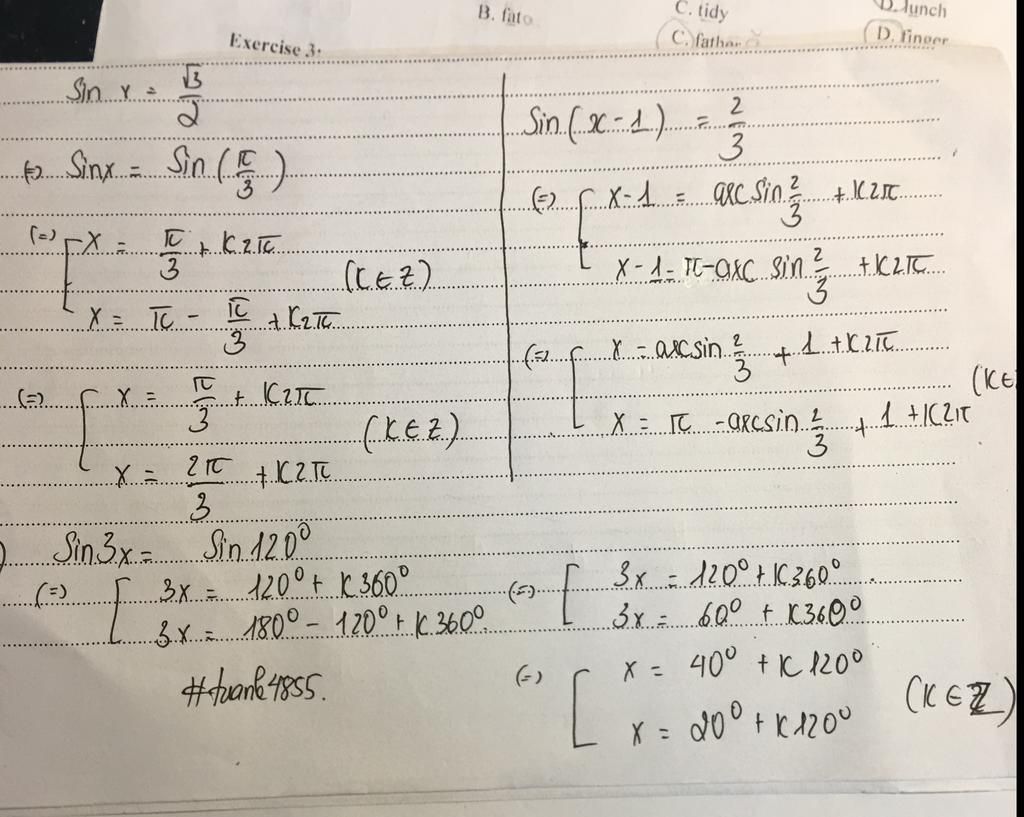 B. fato
C. tidy
D. lunch
Exercise 3.
C. father
D. finger
Sin x = √3/2
(=) Sinx = Sin (π/3)
(=) [ x = π/3 + K2π
x = π - π/3 + K2π
(K ∈ Z)
(=) [ x = π/3 + K2π
x = 2π/3 + K2π
(K ∈ Z)
Sin(x-1) = 2/3
(=) [ x-1 = arcsin 2/3 + K2π
x-1 = π-arc sin 2/3 + K2π
(=) [ x = arcsin 2/3 + 1 + K2π
x = π - arcsin 2/3 + 1 + K2π
(K∈
) Sin3x = Sin120⁰
(=) [ 3x = 120⁰ + K360⁰
3x = 180⁰ - 120⁰ + K360⁰
(=) [ 3x = 120⁰ + K360⁰
3x = 60⁰ + K360⁰
(=) [ x = 40⁰ + K120⁰
x = 20⁰ + K120⁰
(K ∈ Z)